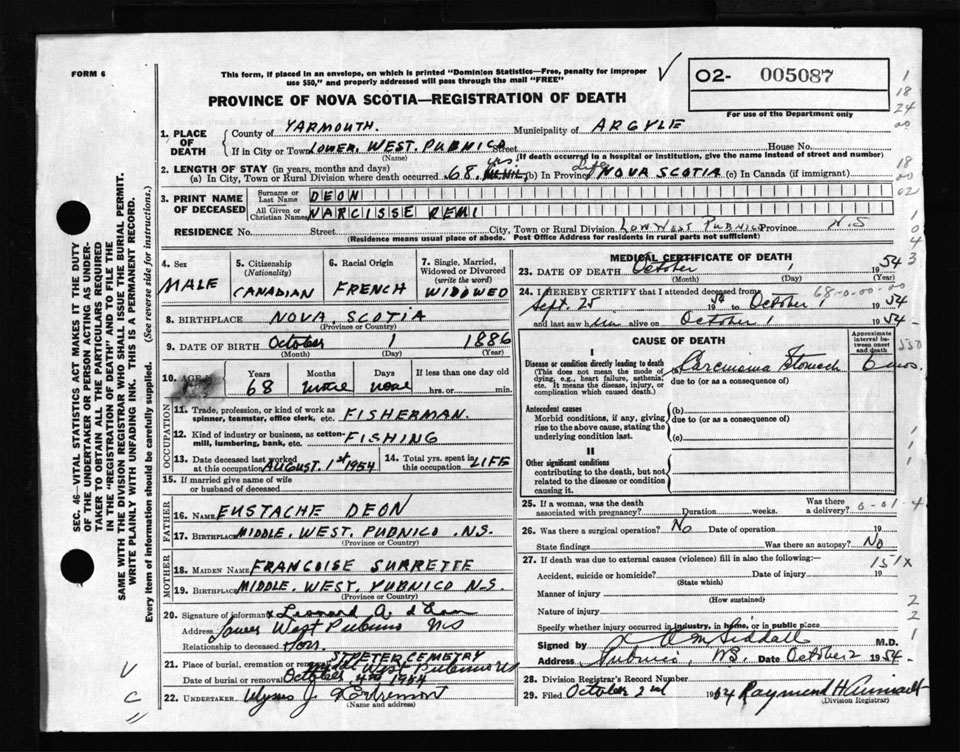 FORM 6
This form, if placed in an envelope, on which is printed "Dominion Statistics—Free, penalty for improper
use $50," and properly addressed will pass through the mail "FREE"
02- 005087
For use of the Department only
PROVINCE OF NOVA SCOTIA—REGISTRATION OF DEATH
1. PLACE OF DEATH
County of YARMOUTH. Municipality of ARGYLE
If in City or Town LOWER. WEST. PUBNICO Street House No.
(Name) (If death occurred in a hospital or institution, give the name instead of street and number)
2. LENGTH OF STAY (in years, months and days)
(a) In City, Town or Rural Division where death occurred 68 yrs. (b) In Province Life NOVA SCOTIA (c) In Canada (if immigrant)
3. PRINT NAME OF DECEASED
Surname or Last Name DEON
All Given or Christian Names NARCISSE REMI
RESIDENCE No. Street City, Town or Rural Division Low West Pubnico Province N.S
(Residence means usual place of abode. Post Office Address for residents in rural parts not sufficient)
4. Sex MALE
5. Citizenship (Nationality) CANADIAN
6. Racial Origin FRENCH
7. Single, Married, Widowed or Divorced (write the word) WIDOWED
8. BIRTHPLACE NOVA SCOTIA
(Province or Country)
9. DATE OF BIRTH October 1 1886
(Month) (Day) (Year)
10. AGE Years 68 Months none Days none If less than one day old hrs. or min.
OCCUPATION
11. Trade, profession, or kind of work as spinner, teamster, office clerk, etc. FISHERMAN.
12. Kind of industry or business, as cotton-mill, lumbering, bank, etc. FISHING
13. Date deceased last worked at this occupation AUGUST. 1st 1954
14. Total yrs. spent in this occupation LIFE
15. If married give name of wife or husband of deceased
FATHER
16. NAME EUSTACHE DEON
17. BIRTHPLACE MIDDLE. WEST. PUBNICO .N.S.
(Province or Country)
MOTHER
18. MAIDEN NAME FRANCOISE SURRETTE
19. BIRTHPLACE MIDDLE. WEST. PUBNICO N.S.
(Province or Country)
20. Signature of informant x Leonard A. d'Eon
Address Lower West Pubnico NS
Relationship to deceased Son.
21. Place of burial, cremation or removal ST PETER CEMETRY West Pubnico NS
Date of burial or removal October 4th 1954
22. UNDERTAKER Ulysse J d'Entremont
(Name and address)
MEDICAL CERTIFICATE OF DEATH
23. DATE OF DEATH October 1 1954
(Month) (Day) (Year)
68-0-00-00-00
24. I HEREBY CERTIFY that I attended deceased from
Sept. 25 1954 to October 1 1954
and last saw him alive on October 1 1954
CAUSE OF DEATH
Approximate interval between onset and death
I
Disease or condition directly leading to death
(This does not mean the mode of dying, e.g., heart failure, asthenia, etc. It means the disease, injury, or complication which caused death.)
Carcinoma Stomach 6 mos.
due to (or as a consequence of)
Antecedent causes
Morbid conditions, if any, giving rise to the above cause, stating the underlying condition last.
(b)
due to (or as a consequence of)
(c)
II
Other significant conditions
contributing to the death, but not related to the disease or condition causing it.
25. If a woman, was the death associated with pregnancy? Duration weeks. Was there a delivery? 0-01
26. Was there a surgical operation? No Date of operation 19
State findings Was there an autopsy? No
27. If death was due to external causes (violence) fill in also the following:— 151X
Accident, suicide or homicide? Date of injury 19
(State which)
Manner of injury
(How sustained)
Nature of injury
Specify whether injury occurred in industry, in home, or in public place
Signed by x O M Siddall M.D.
Address Pubnico, NS. Date October 2 1954
28. Division Registrar's Record Number
29. Filed October 2nd 1954
(Division Registrar)
SEC. 46—VITAL STATISTICS ACT MAKES IT THE DUTY
OF THE UNDERTAKER OR PERSON ACTING AS UNDER-
TAKER TO OBTAIN ALL THE PARTICULARS REQUIRED
IN THE "REGISTRATION OF DEATH" AND TO FILE THE
SAME WITH THE DIVISION REGISTRAR WHO SHALL ISSUE THE BURIAL PERMIT.
WRITE PLAINLY WITH UNFADING INK. THIS IS A PERMANENT RECORD.
Every item of Information should be carefully supplied. (See reverse side for instructions.)